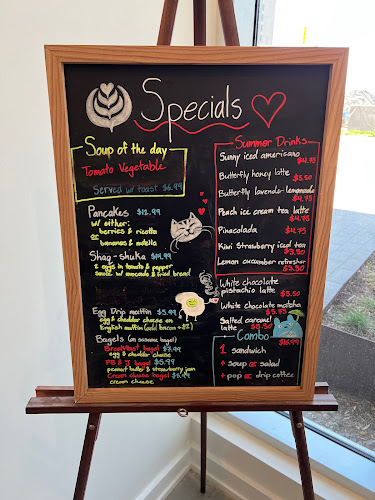 Specials
Soup of the day
Tomato Vegetable
Served w/ toast $6.99
Pancakes $12.99
w/ either:
berries & ricotta
or
bananas & nutella
Shag-shuka $14.99
2 eggs in tomato & pepper
sauce w/ avocado & fried bread
Egg Drip muffin $5.99
egg & cheddar cheese on
English muffin (add bacon +$2)
Bagels (on sesame bagel)
Breakfast bagel $7.99
egg & cheddar cheese
PB & J bagel $5.99
peanut butter & strawberry jam
Cream cheese bagel $5.99
cream cheese
Summer Drinks
Sunny iced americano
$4.75
Butterfly honey latte
$5.50
Butterfly lavender lemonade
$4.75
Peach ice cream tea latte
$4.75
Pinacolada $4.75
Kiwi strawberry iced tea
$3.50
Lemon cucumber refresher
$3.50
White chocolate
pistachio latte $5.50
White chocolate matcha
$5.75
Salted caramel
latte $5.50
Combo $16.99
1 sandwich
+ soup or salad
+ pop or drip coffee